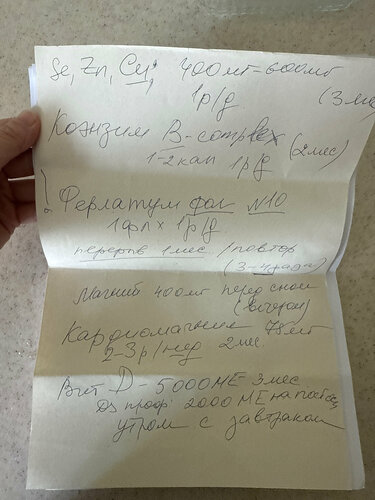 Se, Zn, Cu, 400мг-600мг
1р/д (3 мес
Коэнзим B-complex
1-2кап 1р/д (2мес)
! Ферлатум фол N10
1фл х 1р/д
перерыв 1мес /повтор
(3-4раза)
Магний 400мг перед сном
(вечером)
Кардиомагнил 75мг
2-3р/нед 2мес
Вит D - 5000МЕ-3мес
D3 проф 2000МЕ на пост
утром с завтраком